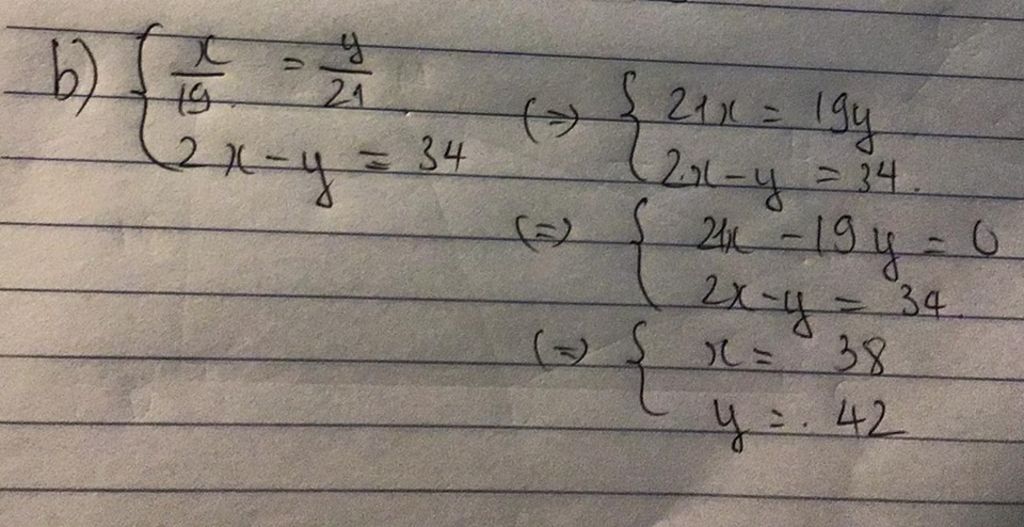 b) { x/19 = y/21
2x - y = 34
(=) { 21x = 19y
2x - y = 34.
(=) { 21x - 19y = 0
2x - y = 34.
(=) { x = 38
y = . 42